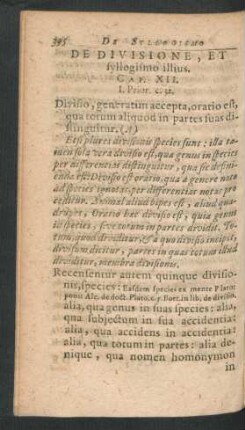 DE SYLLOGISMO
DE DIVISIONE, ET
syllogismo illius.
CAP. XII.
I. Prior. c. 31.
Divisio, generatim accepta, oratio est,
qua totum aliquod in partes suas di-
stinguitur. (A)
Etsi plures divisionis species sunt: illa ta-
men sola vera divisio est, qua genus in species
per differentias distinguitur, qua sic defini-
enda est: Divisio est oratio, qua à genere nato
ad species
Animal aliud bipes est, aliud qua-
drupes. Oratio hec divisio est, quia genus
in species, seu totum in partes dividit. To-
tum, quod dividitur, & a quo divisio incipit,
divisum dicitur, partes in quas totum divi-
ditur, membra divisionis.
Recensentur autem quinque divisio-
nis, species: Easdem species ex mente Platonis
ponit Alc. de doct. Plato. c. 5. Boet. in lib. de division.
alia, qua genus in suas species: alia,
qua subjectum in sua accidentia:
alia, qua accidens in accidentia:
alia, qua totum in partes: alia de-
nique, qua nomen homonymon
in